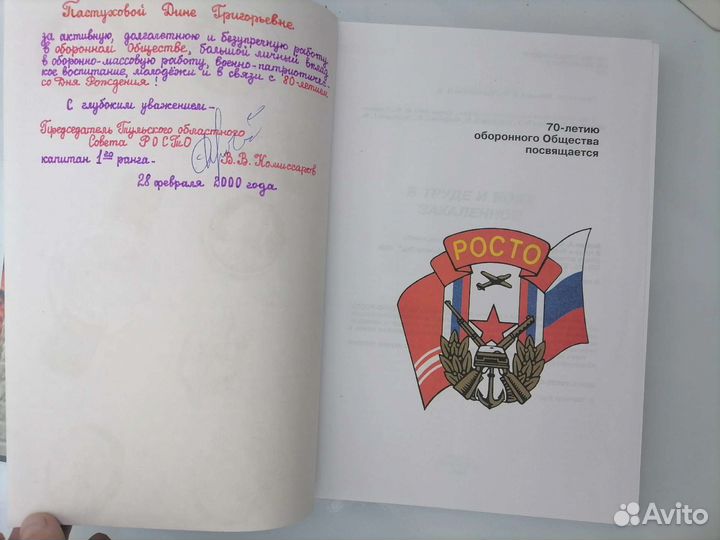 Пастуховой Дине Григорьевне
за активную, долголетнюю и безупречную работу
в оборонном Обществе, большой личный вклад
в оборонно-массовую работу, военно-патриотичес-
кое воспитание, молодёжи и в связи с 80-летием
со Дня Рождения!
С глубоким уважением-
Председатель Тульского областного
Совета РОСТО
капитан 1го ранга- В.В. Комиссаров
28 февраля 2000 года
70-летию
оборонного Общества
посвящается
РОСТО
В ТРУДЕ И
ЗАКАЛЕННОЕ
Avito